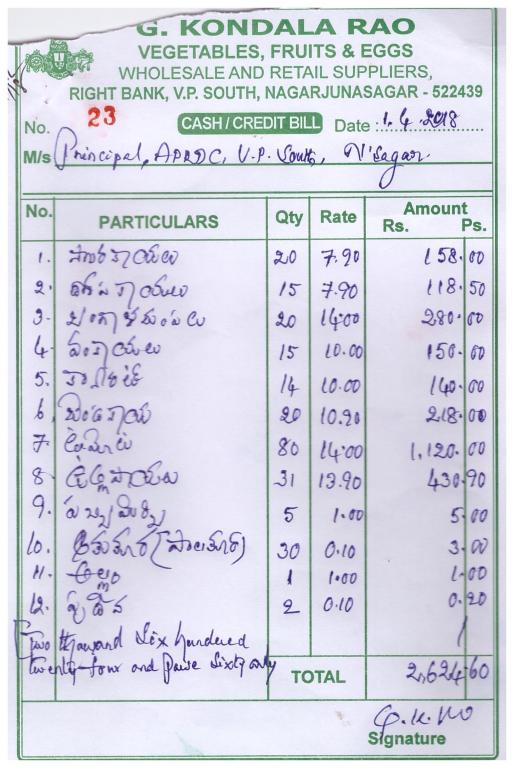 G. KONDALA RAO
VEGETABLES, FRUITS & EGGS
WHOLESALE AND RETAIL SUPPLIERS,
RIGHT BANK, V.P. SOUTH, NAGARJUNASAGAR - 522439
No. 23 CASH / CREDIT BILL Date : 1.4.2018
M/s Principal, APRDC, V.P. South, N'Sagar.
No. PARTICULARS Qty Rate Amount
Rs. Ps.
1. 20 7.90 158.00
2. దోసకాయలు 15 7.90 118.50
3. బంగాళదుంపలు 20 14.00 280.00
4. వంకాయలు 15 10.00 150.00
5. క్యారెట్ 14 10.00 140.00
6. బెండకాయ 20 10.90 218.00
7. టమోటాలు 80 14.00 1,120.00
8. ఉల్లిపాయలు 31 13.90 430.90
9. పచ్చిమిర్చి 5 1.00 5.00
10. 30 0.10 3.00
11. అల్లం 1 1.00 1.00
12. పుదీన 2 0.10 0.20
[Two thousand Six hundred
twenty-four and paise sixty only
TOTAL 2,624.60
Signature